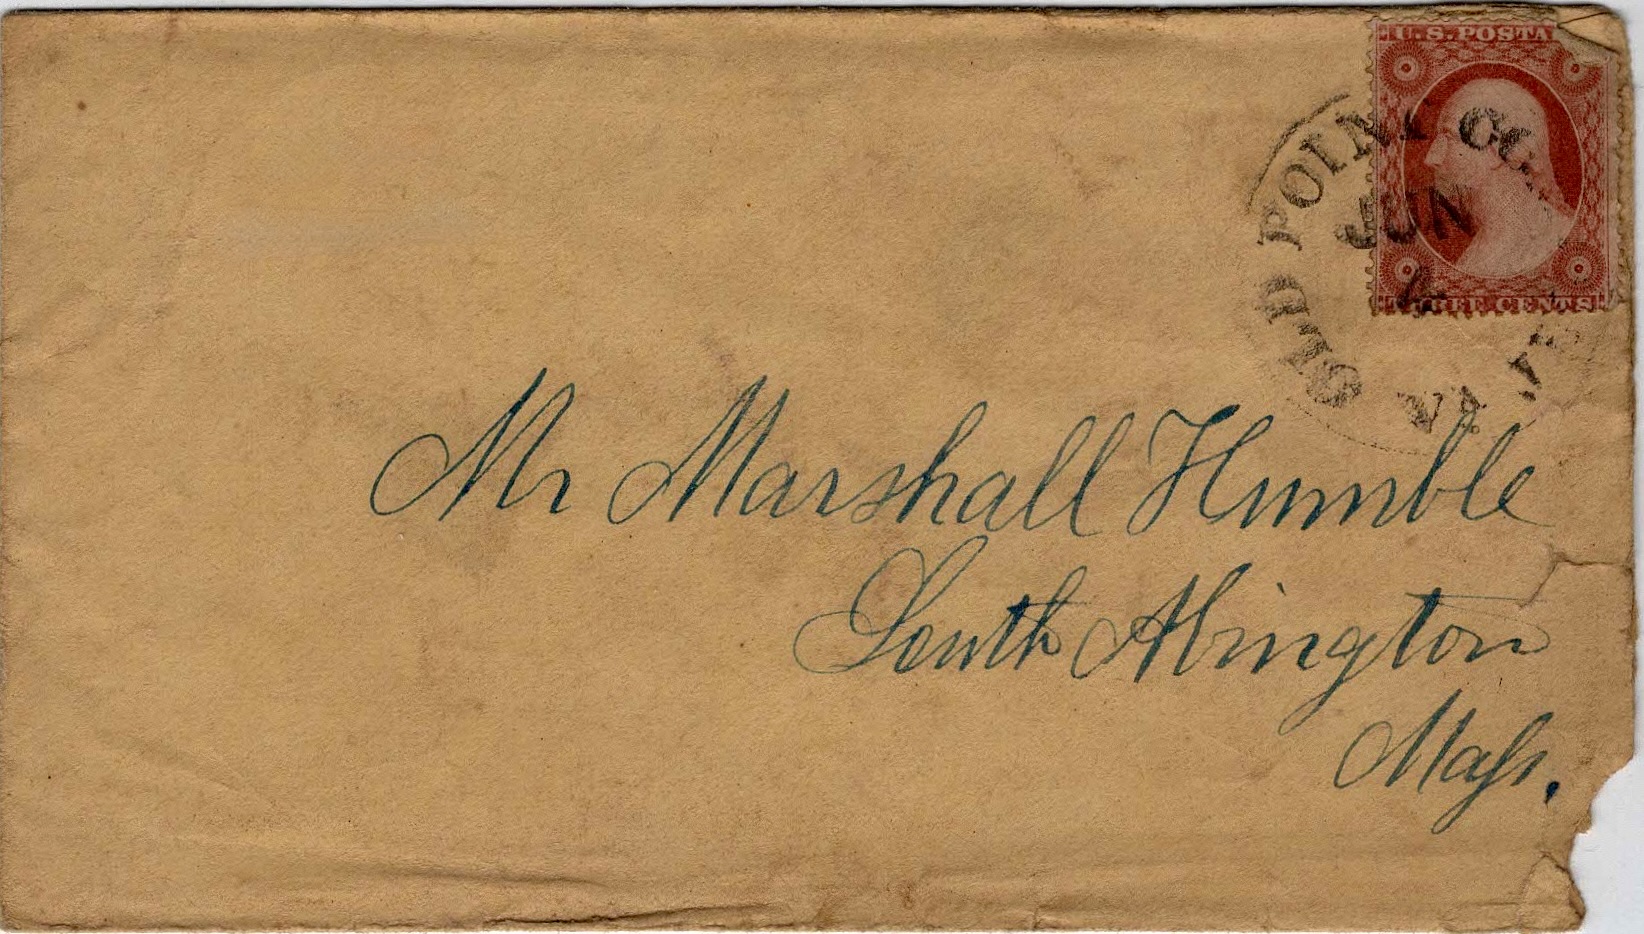 U.S. POSTA
OLD POINT CO
JUN
THREE CENTS
VA.
Mr Marshall Humble
South Abington
Maſs.